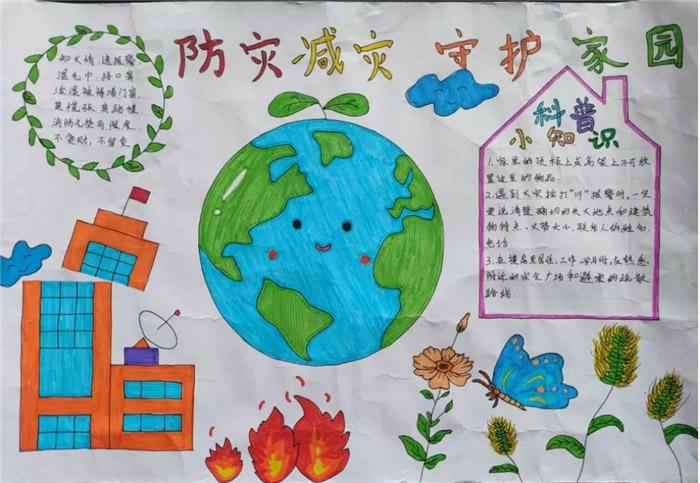 防灾减灾 守护家园
知火情 速报警
湿毛巾 捂口鼻
湿被褥堵门窗
莫慌张 莫跳楼
消防无垫有限度
不贪财,不留恋
科普
小知识
1.家里的顶柜上或高架上不可放
置过重的物品
2.遇到火灾拨打"119"报警时,一定
要说清楚确切的失火地点和建筑
物特点、火势大小,联系人的姓名
电话
3.在楼房里居住、工作、学习时,应熟悉
附近的安全广场和避震的疏散
路线